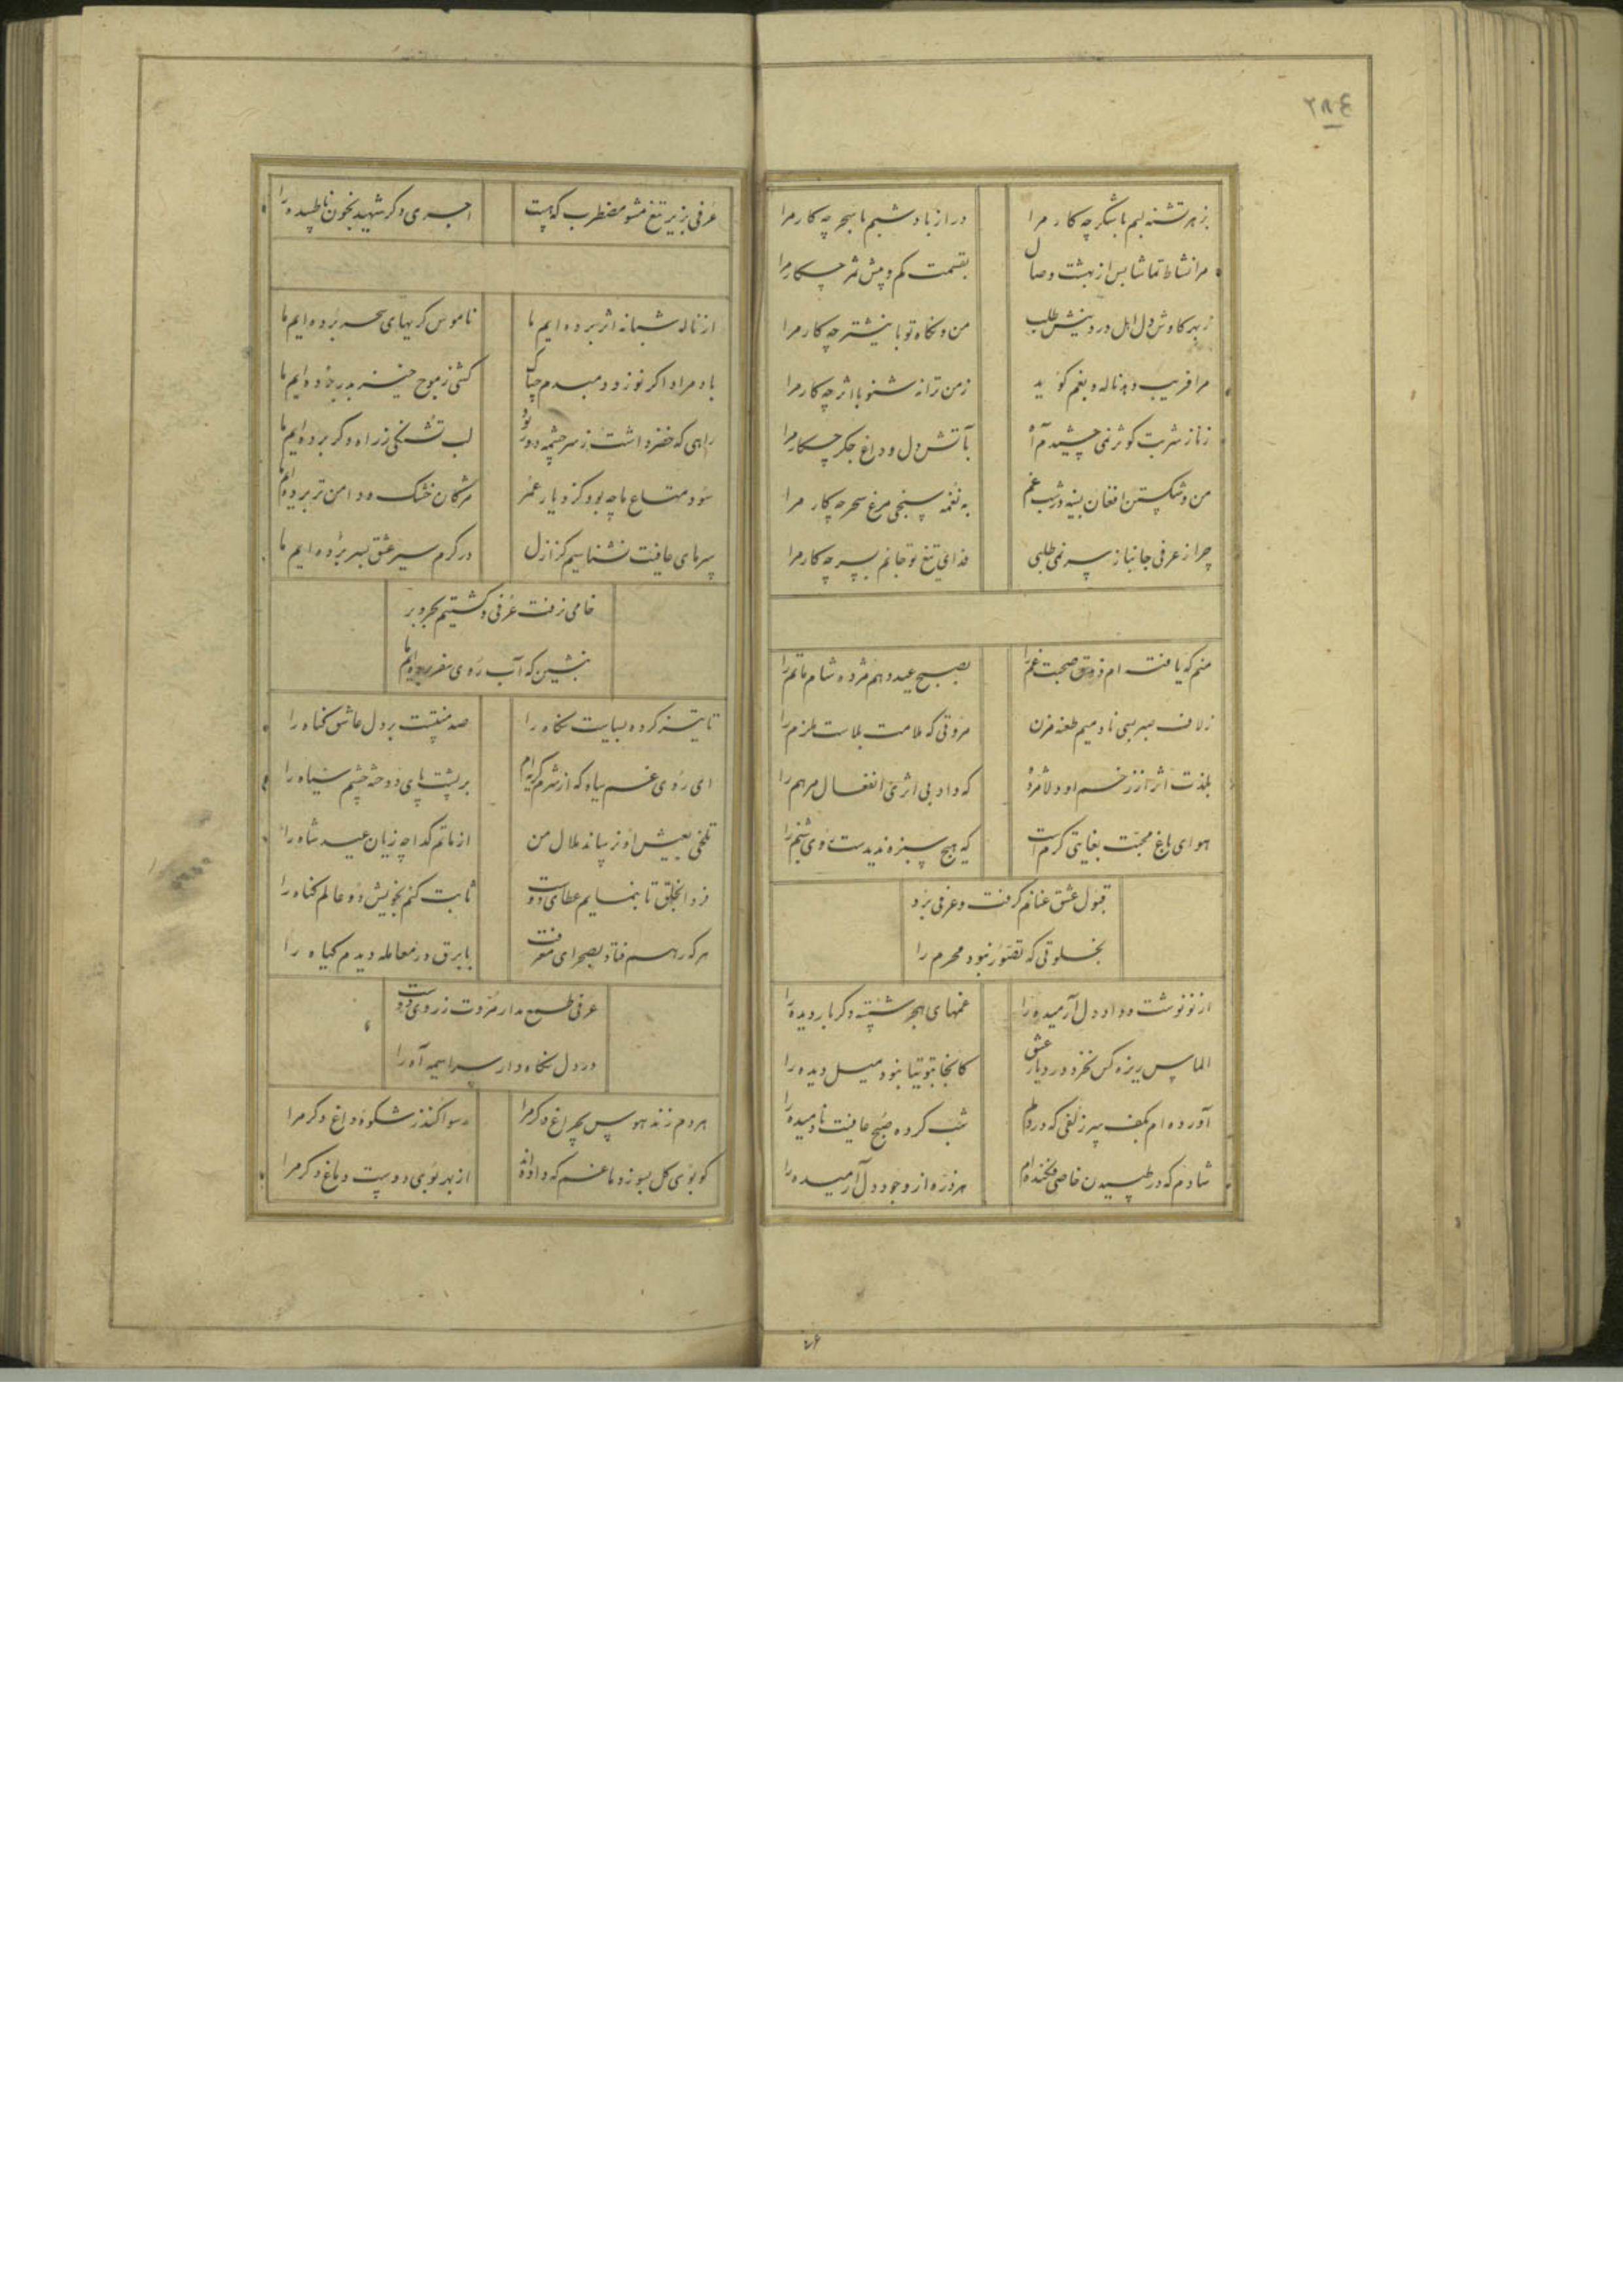 ۲۸۴
بزهر تشنه لبم با شکر چه کار مرا دراز باد شبم با سحر چه کار مرا
مرا نشاط تماشا بس از بهشت وصال بقسمت کم و بیش ثمر چه کار مرا
ز بهر کاوش دل اهل درد نیش طلب من و نکاه تو با نیشتر چه کار مرا
مرا فریب دهد ناله و بغم کوید ز من ترانه شنو با اثر چه کار مرا
زناز شربت کوثر نمی چشیدم آه بآتش دل و داغ جکر چه کار مرا
من و شکستن افغان بسینه در شب غم به نغمه سنجی مرغ سحر چه کار مرا
چرا ز عرفی جانباز سر نمی طلبی فدای تیغ تو جانم بسر چه کار مرا
منم که یافته ام ذوق صحبت غم را بصبح عید دهم مژده شام ماتم را
ز لاف صبر بسی نادمیم طعنه مزن مروتی که ملامت بلاست ملزم را
بلذت اثر از زخم او دلا مژده که داد بی اثری انفعال مرهم را
هوای باغ محبت بغایتی کرم است که هیچ سبزه ندیدست روی شبنم را
قبول عشق عنانم کرفت و عرفی برد
بخلوتی که تصور نبود محرم را
از نو نوشت دل آرمیده را غمهای هجر شسته دکر بار دیده را
الماس ریزه کس نخرد در دیار عشق کانجا بتوتیا نبود میل دیده را
آورده ام بکف سر زلفی که در دلم شب کرده صبح عافیت نادمیده را
شادم که در طپیدن خاصی فکنده ام هر ذره از وجود دل آرمیده را
عرفی بزیر تیغ مشو مضطرب که هست اجری دکر شهید بخون ناطپیده را
از ناله شبانه اثر برده ایم ما ناموس کریهای سحر برده ایم ما
باد مراد اکر نوزد دمبدم چه باک کشتی ز موج خیز بدر برده ایم ما
راهی که خضر داشت ز سرچشمه دور بود لب تشنکی ز راه دکر برده ایم ما
سود متاع ما چه بود کز دیار عمر مژکان خشک و دامن تر برده ایم ما
سرمای عافیت نشناسیم کز ازل در کرم سیر عشق بسر برده ایم ما
خامی نرفت عرفی و کشتیم بحر و بر
بنشین که آب روی سفر برده ایم ما
تا تیز کرده بسیاست نکاه را صد منتست بر دل عاشق کناه را
ای روی غم سیاه که از شرم کریه ام بر پشت پای دوخته چشم سیاه را
تلخی بعیش او نرساند ملال من از ماتم کدا چه زیان عید شاه را
فردا بخلق تا بنمایم عطای دوست ثابت کنم بخویش دو عالم کناه را
هر که رهم فتاد بصحرای معرفت با برق در معامله دیدم کیاه را
عرفی طمع مدار مروت ز روی دوست
در دل نکاه دار سراسیمه آه را
هر دم زند هوس بچراغ دکر مرا رسوا کند ز شکوه داغ دکر مرا
کو بوی کل بسوز دماغم که داده اند از بهر بوی دوست دماغ دکر مرا